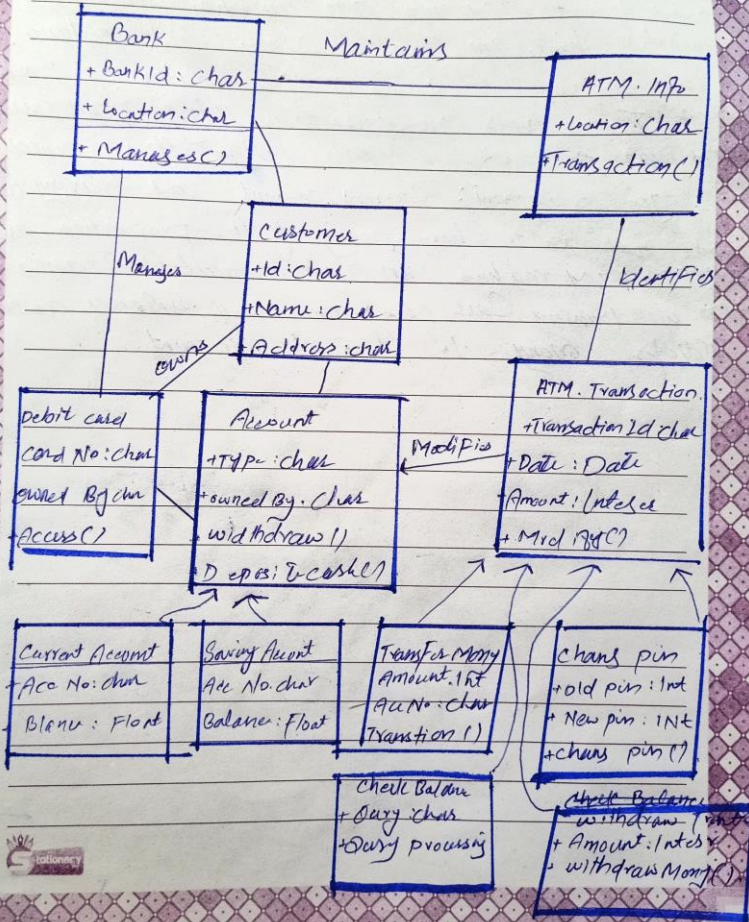 Bank
+ BankId : char
+ Location : char
+ Manages()
Maintains
ATM. Info
+ Location : Char
+Transaction()
Customer
+Id : char
+Name : char
+Address : char
Manages
owns
Identifies
Debit card
Card No : char
owned By char
+Access()
Account
+TYPe : char
+owned By. char
+ widthdraw()
+Deposit cash()
Modifies
ATM. Transaction.
+Transaction Id char
+Date : Date
Amount : Integer
+ Modify()
Current Account
+Acc No: char
Blance : Float
Saving Account
Acc No. char
Balance : Float
Transfer Mony
Amount. Int
Acc No : Char
Transtion()
Chang pin
+old pin : Int
+ New pin : INt
+chang pin()
Check Balance
+ Qury : char
+Qury processing
Check Balance
withdraw
+ Amount : Integer
+ withdraw Mony()
Stationery